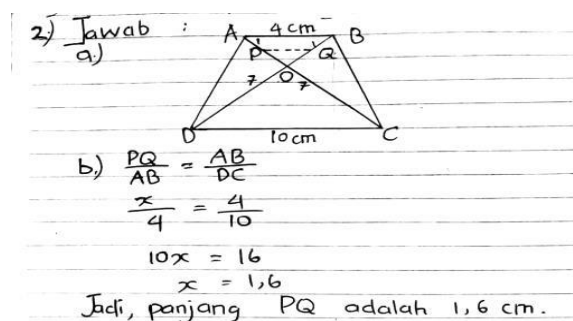 2.) Jawab :
a.)
A 4 cm B
P Q
7 O 7
D 10 cm C
b.) PQ/AB = AB/DC
x/4 = 4/10
10x = 16
x = 1,6
Jadi, panjang PQ adalah 1,6 cm.